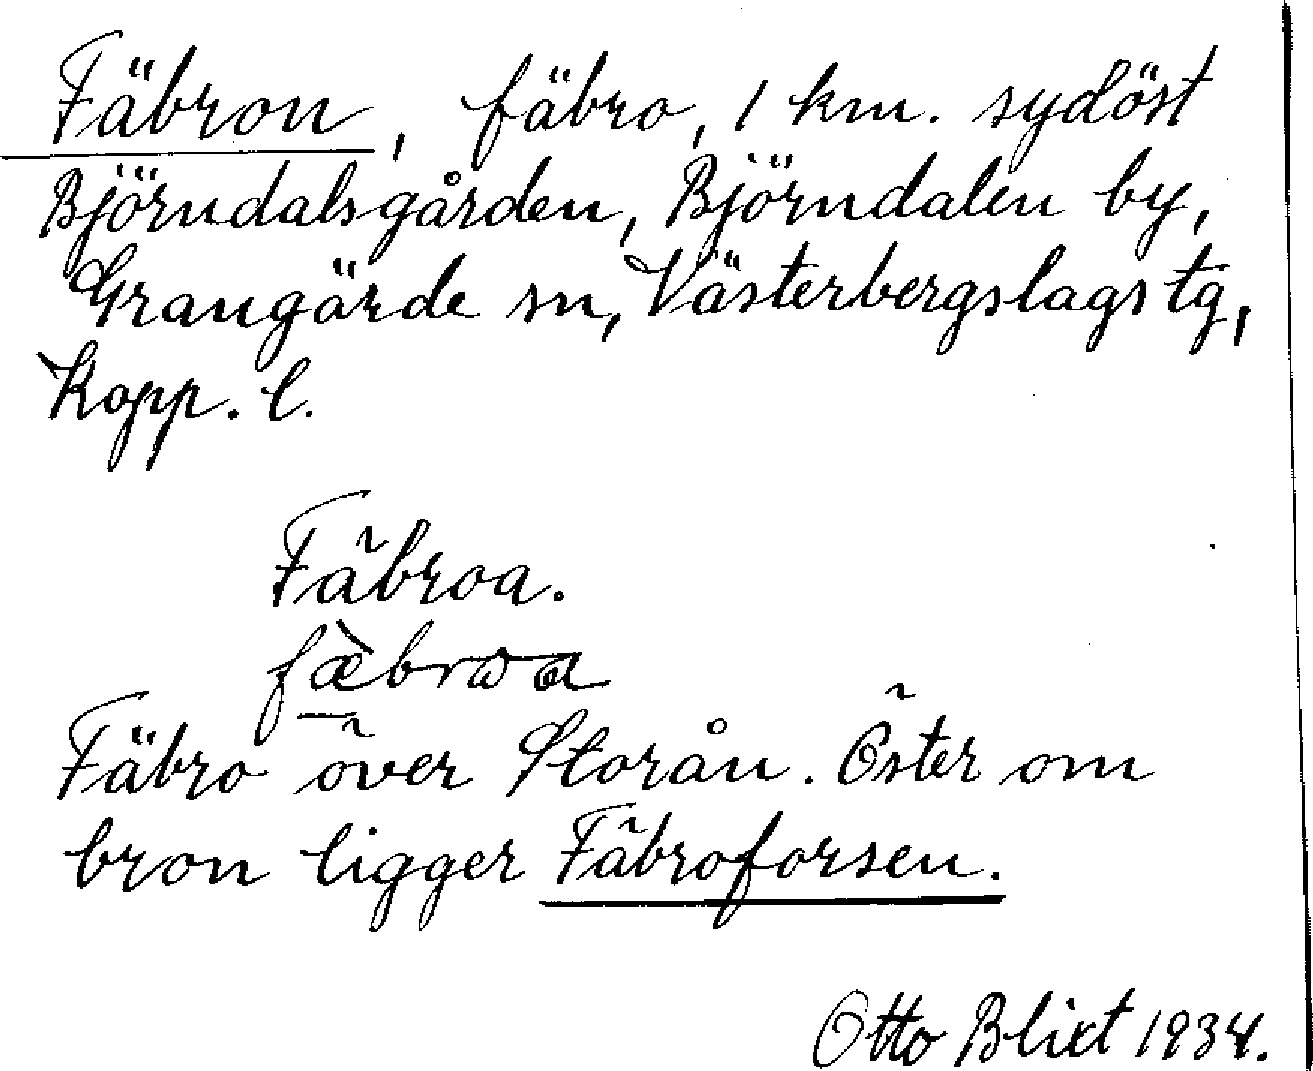 Fäbron, fäbro, 1 km. sydöst
Björndalsgården, Björndalen by,
Grangärde sn, Västerbergslags tg,
Kopp. l.
Fäbroa.
fæ̀broa
Fäbro över Storån. Öster om
bron ligger Fäbroforsen.
Otto Blixt 1934.